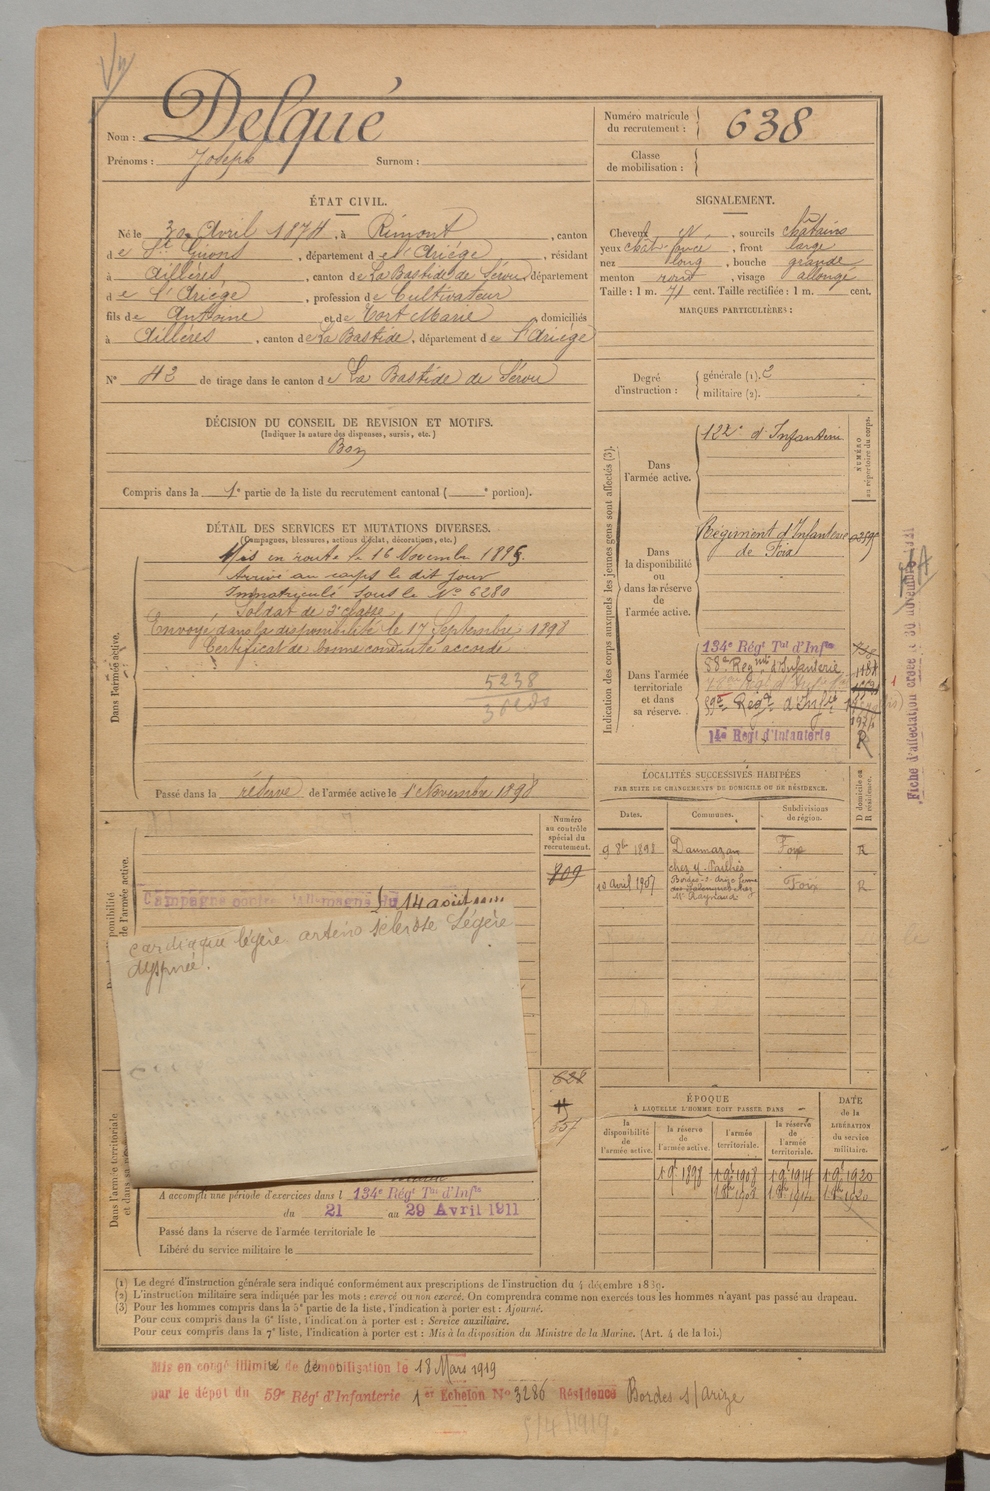 Nom : Delqué
Prénoms : Joseph Surnom :
Numéro matricule du recrutement : 638
Classe de mobilisation :
ÉTAT CIVIL.
Né le 30 Avril 1874, à Rimont, canton
de St Girons, département de l'Ariège, résidant
à Aillères, canton de La Bastide de Sérou, département
de l'Ariège, profession de Cultivateur
fils de Antoine et de Tort Marie, domiciliés
à Aillères, canton de La Bastide, département de l'Ariège
N° 42 de tirage dans le canton de La Bastide de Sérou
SIGNALEMENT.
Cheveux , sourcils châtains
yeux , front large
nez long, bouche grande
menton rond, visage allongé
Taille : 1 m. 71 cent. Taille rectifiée : 1 m. cent.
MARQUES PARTICULIÈRES :
Degré d'instruction : générale (1). 2
militaire (2).
DÉCISION DU CONSEIL DE REVISION ET MOTIFS.
(Indiquer la nature des dispenses, sursis, etc.)
Bon
Compris dans la 1e partie de la liste du recrutement cantonal ( e portion).
DÉTAIL DES SERVICES ET MUTATIONS DIVERSES.
(Campagnes, blessures, actions d'éclat, décorations, etc.)
Dans l'armée active.
Mis en route le 16 Novembre 1895.
Arrivé au corps le dit jour
Immatriculé sous le N° 6280
Soldat de 2e classe
Envoyé dans la disponibilité le 17 Septembre 1898
Certificat de bonne conduite accordé
5238
Passé dans la réserve de l'armée active le 1er Novembre 1898
Indication des corps auxquels les jeunes gens sont affectés (3).
NUMÉRO au répertoire du corps.
Dans l'armée active.
122e d'Infanterie
Dans la disponibilité ou dans la réserve de l'armée active.
Régiment d'Infanterie
de Foix
Dans l'armée territoriale et dans sa réserve.
134e Régt Tal d'Infie
88e Regmt d'Infanterie
59e Régt d'Infie
14e Régt d'Infanterie
R
Fiche d'affectation créée le 30 novembre 1921
LOCALITÉS SUCCESSIVES HABITÉES
PAR SUITE DE CHANGEMENTS DE DOMICILE OU DE RÉSIDENCE.
Dates. Communes. Subdivisions de région. D domicile ou R résidence.
9 8bre 1898 Daumazan Foix R
10 Avril 1907 Foix R
Numéro au contrôle spécial du recrutement.
809
Campagne contre l'Allemagne du 14 août
cardiaque légère artério sclérose Légère
dyspnée.
638
557
Dans l'armée territoriale
A accompli une période d'exercices dans l 134e Régt Tal d'Infie
du 21 au 29 Avril 1911
Passé dans la réserve de l'armée territoriale le
Libéré du service militaire le
ÉPOQUE
À LAQUELLE L'HOMME DOIT PASSER DANS
la disponibilité de l'armée active. la réserve de l'armée active. l'armée territoriale. la réserve de l'armée territoriale. DATE de la LIBÉRATION du service militaire.
1 9bre 1898 1 9bre 1908 1 9bre 1914 1 9bre 1920
(1) Le degré d'instruction générale sera indiqué conformément aux prescriptions de l'instruction du 4 décembre 1889.
(2) L'instruction militaire sera indiquée par les mots : exercé ou non exercé. On comprendra comme non exercés tous les hommes n'ayant pas passé au drapeau.
(3) Pour les hommes compris dans la 5e partie de la liste, l'indication à porter est : Ajourné.
Pour ceux compris dans la 6e liste, l'indication à porter est : Service auxiliaire.
Pour ceux compris dans la 7e liste, l'indication à porter est : Mis à la disposition du Ministre de la Marine. (Art. 4 de la loi.)
Mis en congé illimité de démobilisation le 18 Mars 1919
par le dépôt du 59e Régt d'Infanterie 1er Echelon N° 3286 Résidence Bordes s/Arize
5/4/1919.